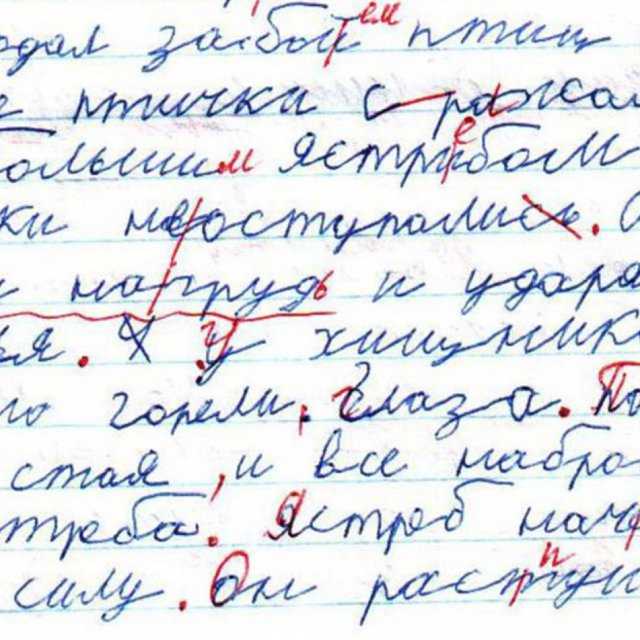 одал забой ем птиц
птички сража
большим ястребом
ки неоступались.
на грудь и удара
ья. У хищник
но горели глаза. По
стая, и все набро
треба. Ястреб нач
силу. Он распу